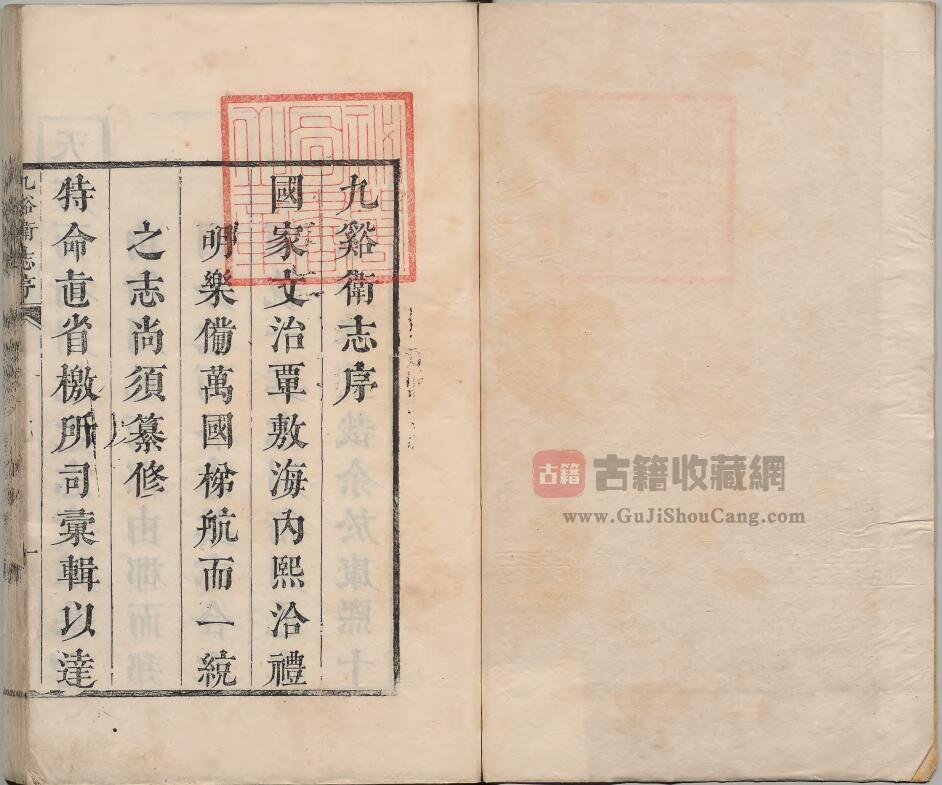 九谿衛志序
國家文治覃敷海內熙洽禮
明樂備萬國梯航而一統
之志尚須纂修
特命直省檄所司彙輯以達
九谿衛志序
古籍
古籍收藏網
www.GuJiShouCang.com